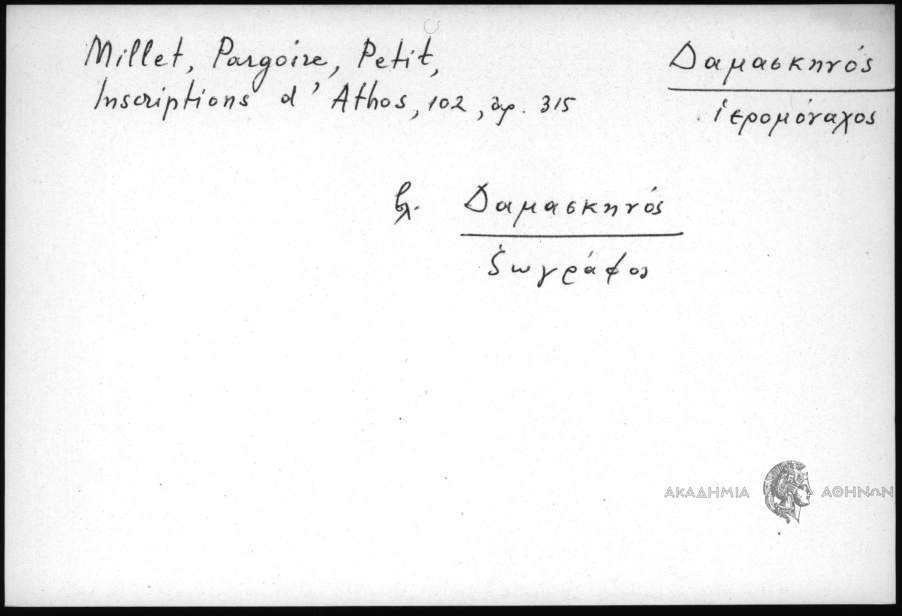 Millet, Pargoire, Petit,
Inscriptions d'Athos, 102, αρ. 315
Δαμασκηνός
ἱερομόναχος
βλ. Δαμασκηνός
ζωγράφος
ΑΚΑΔΗΜΙΑ ΑΘΗΝΩΝ